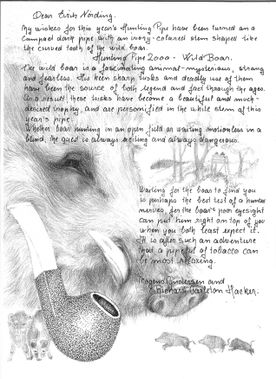 Dear Erik Nørding.
My wishes for this year's Hunting Pipe have been turned on a
compact dark pipe with an ivory-colored stem shaped like
the curved tooth of the wild boar.
Hunting Pipe 2000 - Wild Boar.
The wild boar is a fascinating animal - mysterious, strong
and fearless. His keen sharp tusks and deadly use of them
have been the source of both legend and fact through the ages.
As a result these tusks have become a beautiful and much-
desired trophy, and are personified in the white stem of this
year's pipe.
Whether boar hunting in an open field or waiting motionless in a
blind, the quest is always exciting and always dangerous.
Waiting for the boar to find you
is perhaps the best test of a human
nerves, for the boar's poor eyesight
can put him right on top of you
when you both least expect it.
It is after such an adventure
that a pipeful of tobacco can
be most relaxing.
Mogens Andersen and
Richard Carleton Hacker.